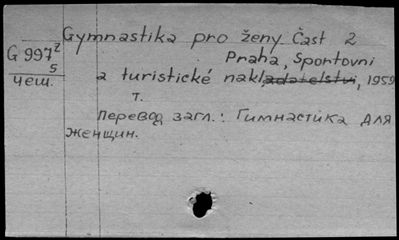 Gymnastika pro ženy Čast 2
G 997 2/5
Praha, Sportovni
чеш.
a turistické nakladatelstvi, 1959
т.
Перевод загл.: Гимнастика для
женщин.